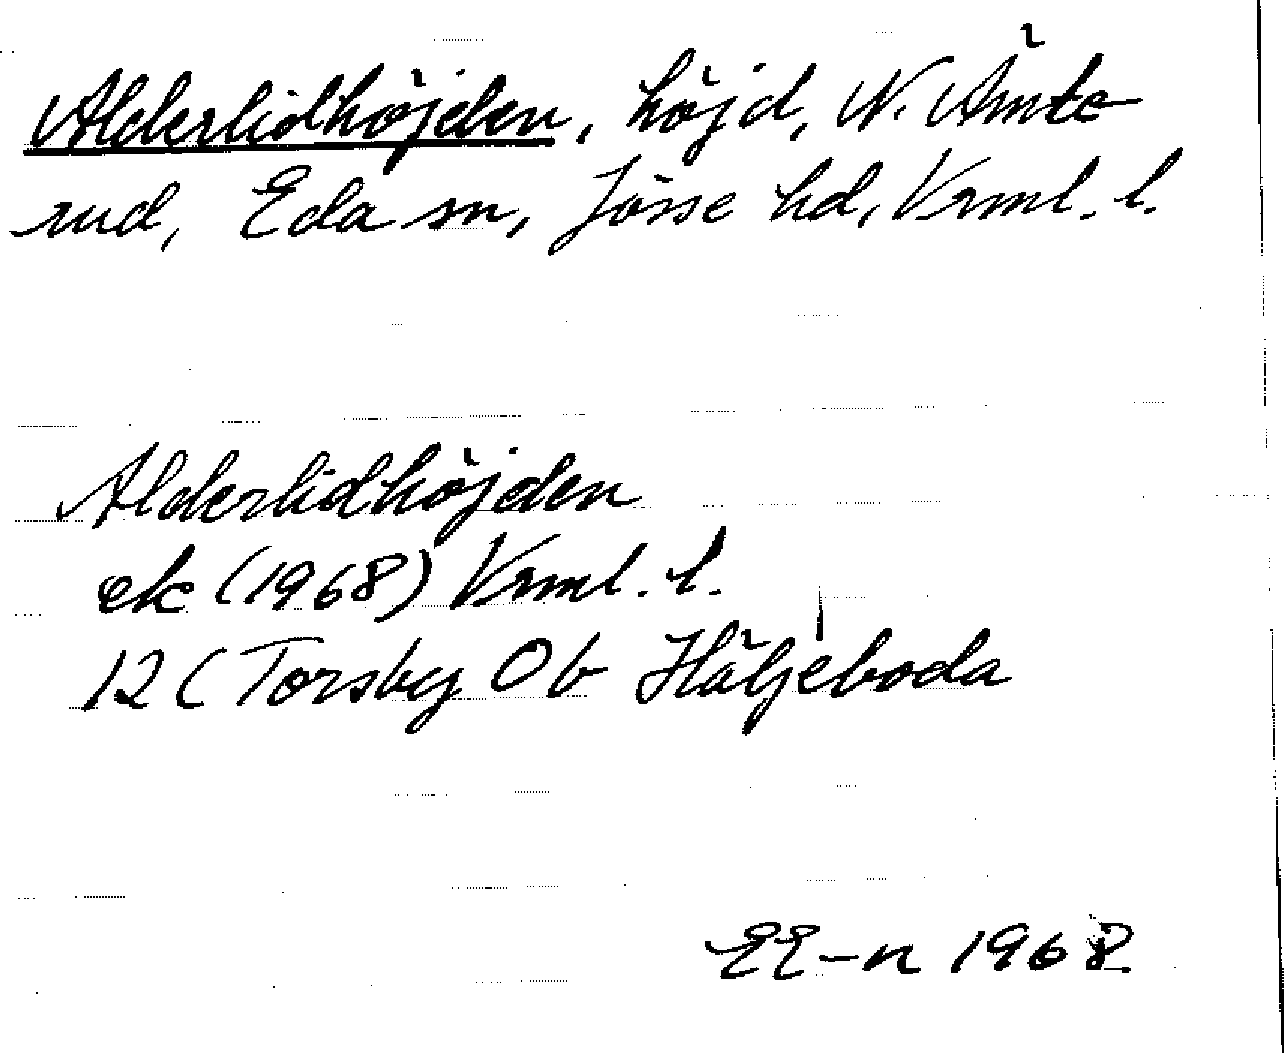 Alderlidhöjden, höjd, N. Ämte
rud, Eda sn, Jösse hd, Vrml. l.
Alderlidhöjden
ek (1968) Vrml. l.
12 C Torsby 0 b Häljeboda
EE-n 1968